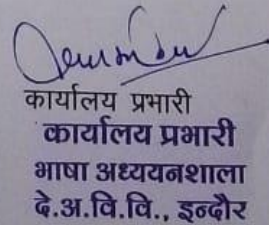 कार्यालय प्रभारी
कार्यालय प्रभारी
भाषा अध्ययनशाला
दे.अ.वि.वि., इन्दौर